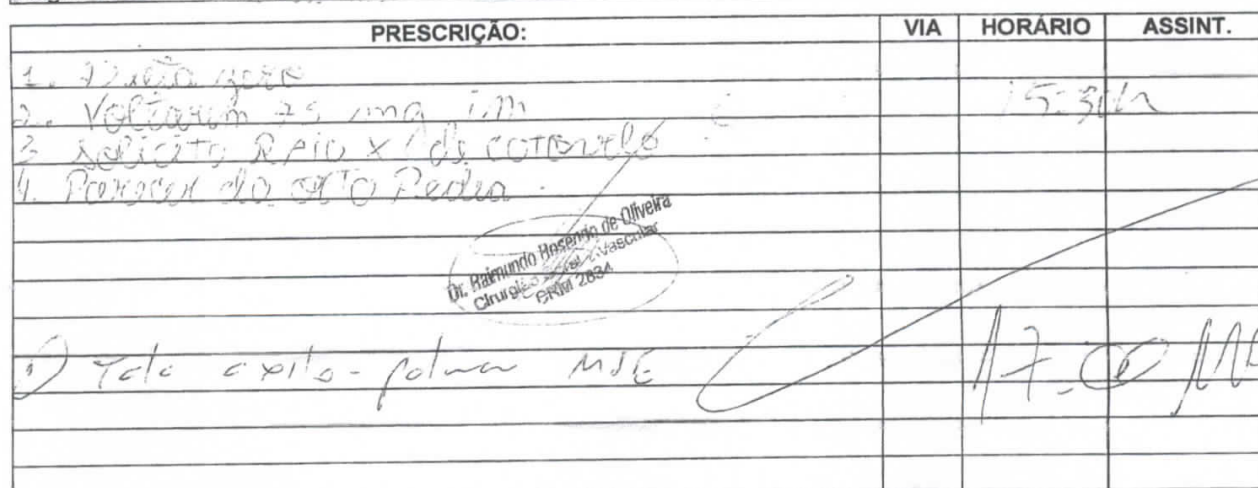 PRESCRIÇÃO: VIA HORÁRIO ASSINT.
1. Dieta zero
2. Voltaren 75 mg IM 15:30h
3 solicito Raio X de cotovelo
4. Parecer da orto Pedia.
Dr. Raimundo Rosendo de Oliveira
Cirurgião Geral e Vascular
CRM 2834
1) Tala axilo-palmar MSE 17:00